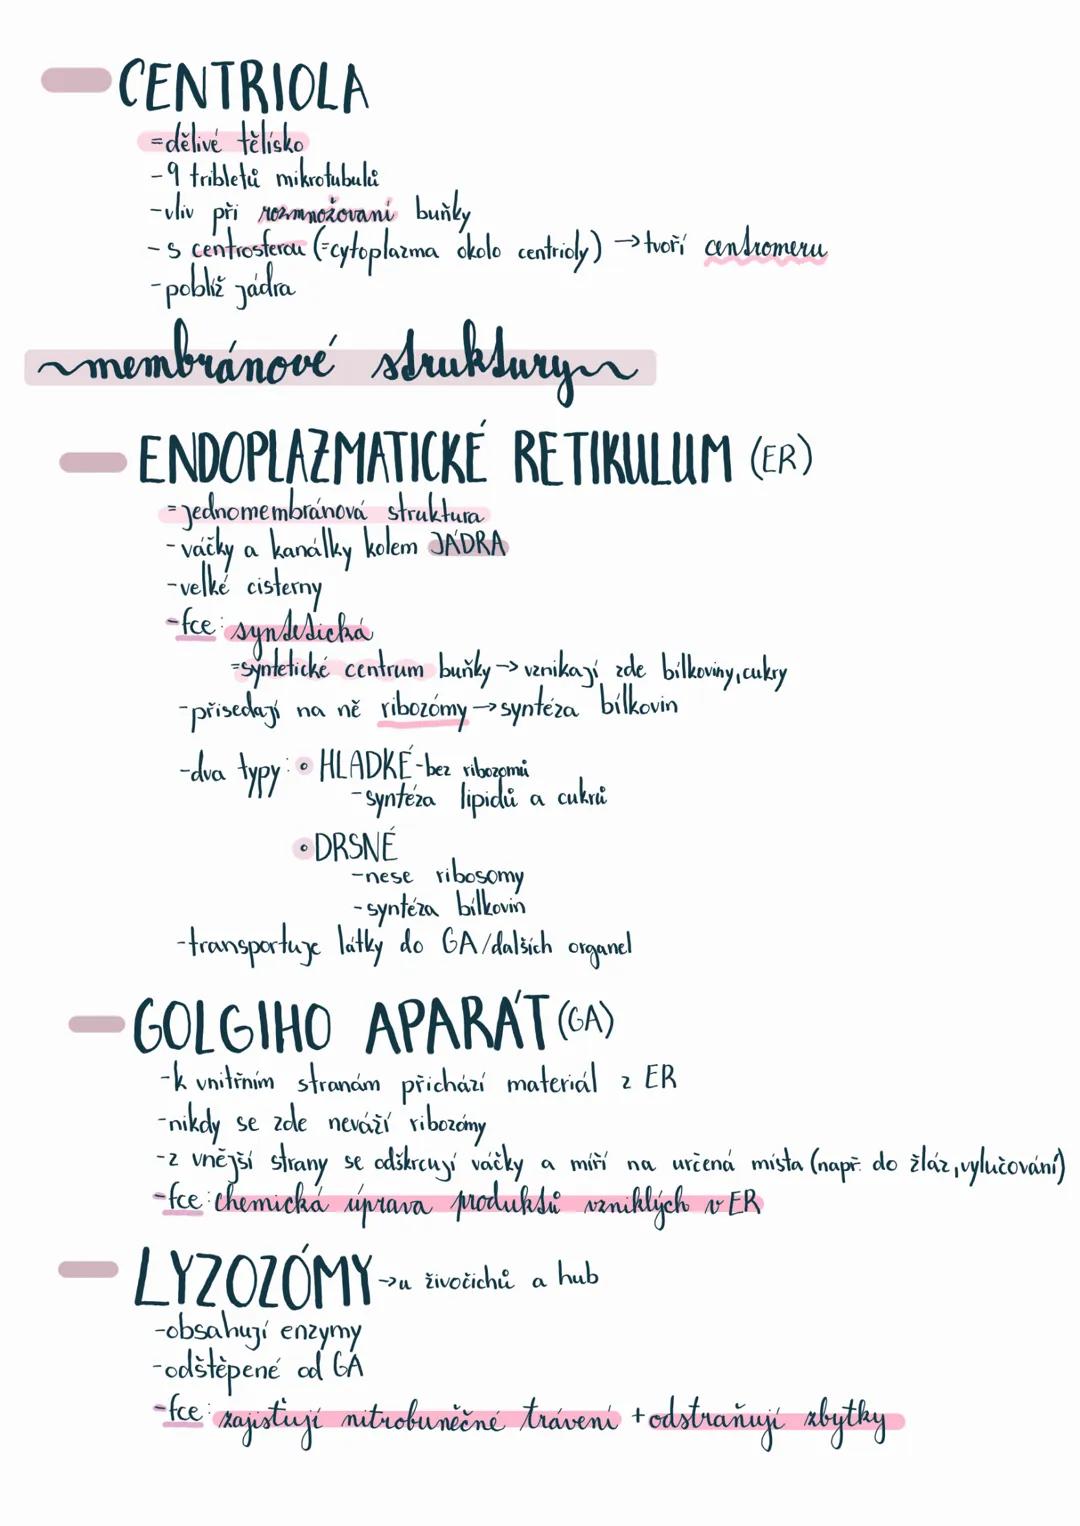 CENTRIOLA
=dělivé tělísko
-9 tribletů mikrotubulů
-vliv při rozmnožovaní buňky
-s centrosferou (=cytoplazma okolo centrioly) →tvoří centromeru
-poblíž jádra
~membránové struktury~
ENDOPLAZMATICKÉ RETIKULUM (ER)
=jednomembránová struktura
-váčky a kanálky kolem JÁDRA
-velké cisterny
-fce: syntetická
=syntetické centrum buňky→vznikají zde bílkoviny,cukry
-přisedají na ně ribozómy→syntéza bílkovin
-dva typy: • HLADKÉ-bez ribozomů
-syntéza lipidů a cukrů
• DRSNÉ
-nese ribosomy
-syntéza bílkovin
-transportuje látky do GA/dalších organel
GOLGIHO APARÁT (GA)
-k vnitřním stranám přichází materiál z ER
-nikdy se zde neváží ribozómy
-z vnější strany se odškrcují váčky a míří na určená místa (např. do žláz,vylučování)
-fce: chemická úprava produktů vzniklých v ER
LYZOZÓMY→u živočichů a hub
-obsahují enzymy
-odštěpené od GA
-fce: zajisťují nitrobuněčné trávení +odstraňují zbytky